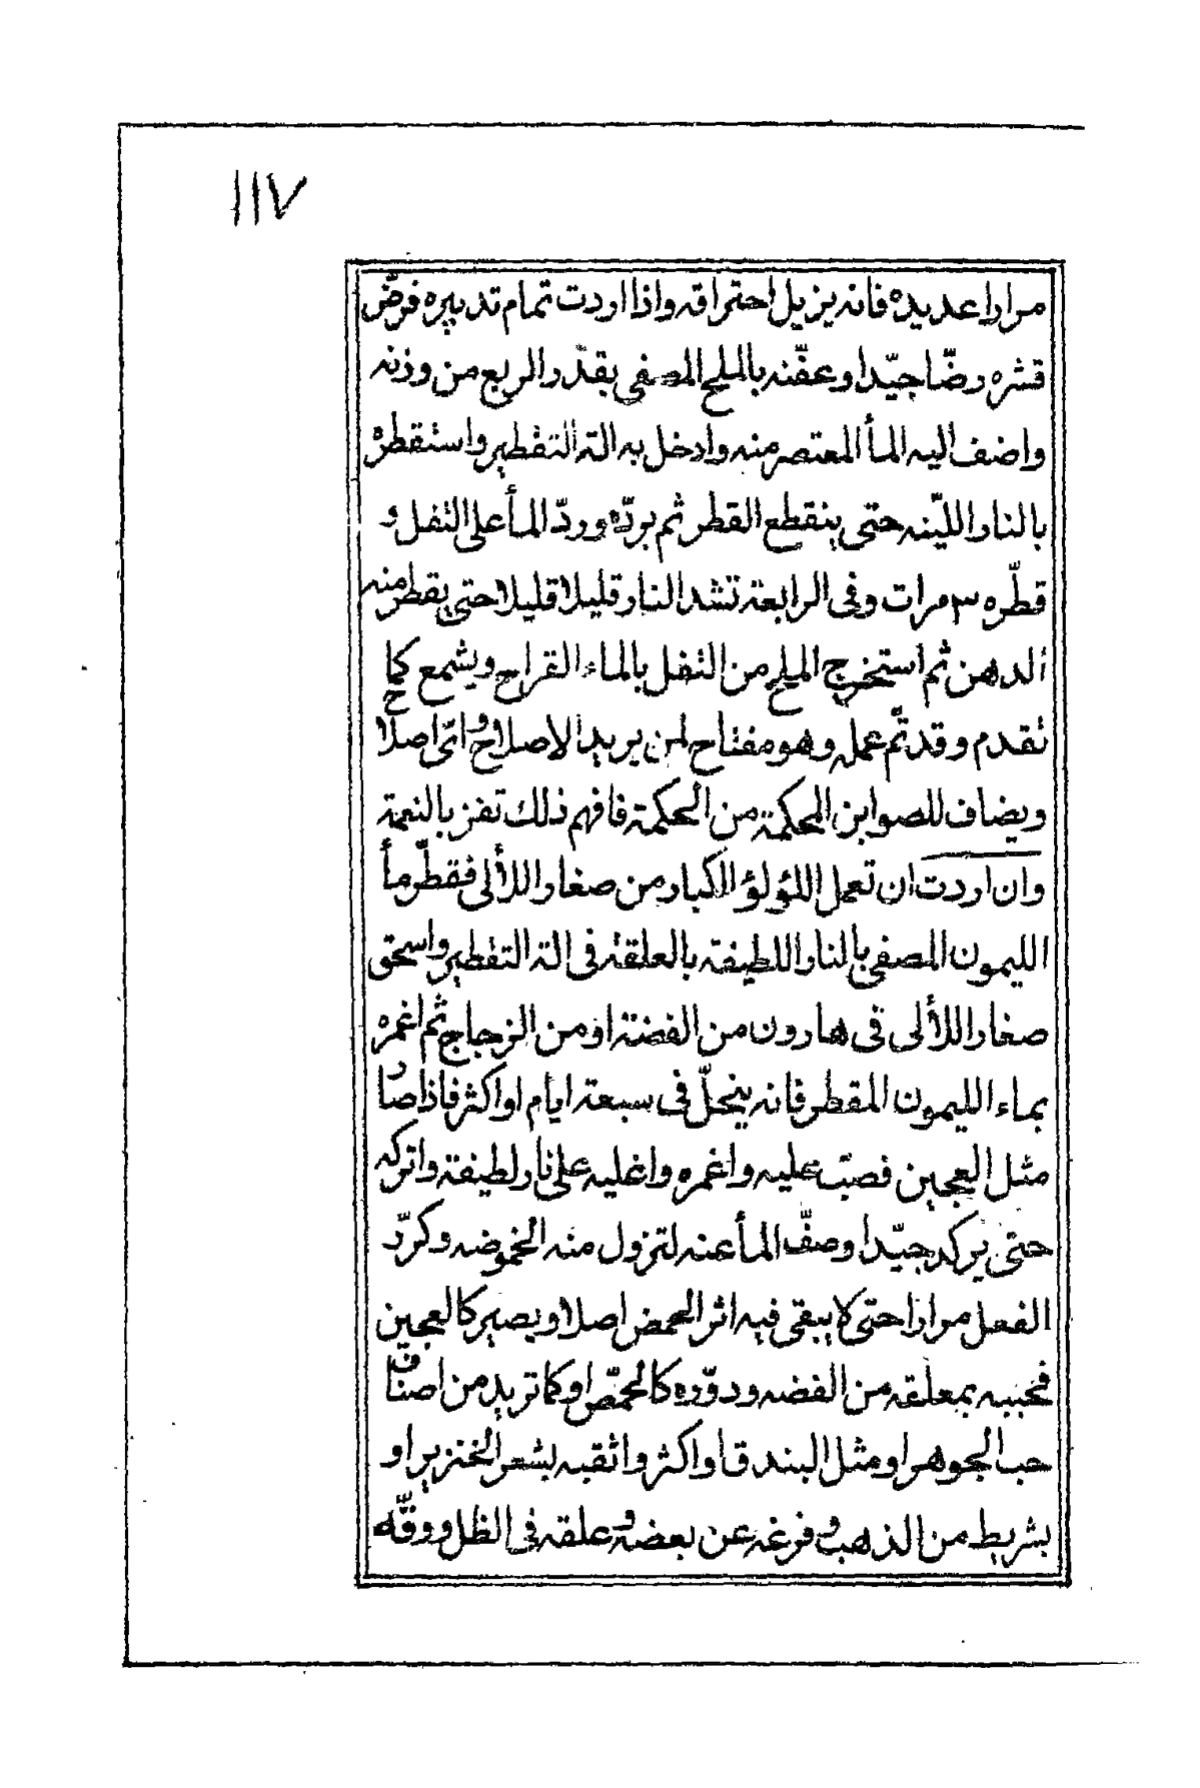 ١١٧
مرارا عديده فانه يزيل احتراقه واذا اردت تمام تدبيره فرضّ
قشره رضّا جيّدا وعفّنه بالملح المصفى بقدر الربع من وزنه
واضف اليه المأ المعتصر منه وادخل به الة التقطير واستقطره
بالنار الليّنه حتى ينقطع القطر ثم برّده وردّ المأ على الثفل و
قطّره ٣ مرات وفى الرابعة تشد النار قليلا قليلا حتى يقطر منه
الدهن ثم استخرج الملح من الثفل بالماء القراح ويشمع كما
تقدم وقد تمّ عمله وهو مفتاح لمن يريد الاصلاح واىّ اصلاح
ويضاف للصوابن المحكمة من الحكمة فافهم ذلك تفز بالنعمة
وان اردت ان تعمل اللؤلؤ الكبار من صغار اللألى فقطّر مأ
الليمون المصفى بالنار اللطيفة بالعلقة فى الة التقطير واسحق
صغار اللألى فى هارون من الفضة او من الزجاج ثم اغمره
بماء الليمون المقطر فانه ينحلّ فى سبعة ايام او اكثر فاذا صار
مثل العجين فصبّ عليه واغمره واغليه على نار لطيفة واتركه
حتى يركد جيّدا وصفّ المأ عنه لتزول منه الحموضه وكرّر
الفعل مرارا حتى لا يبقى فيه اثر الحمض اصلا ويصير كالعجين
فحببه بمعلقه من الفضه ودوّره كالحمّص او كما تريد من اصناف
حب الجوهر او مثل البندق او اكثر واثقبه بشعر الخنزير او
بشريط من الذهب وفرغه عن بعضه وعلقه فى الظل ووقّه